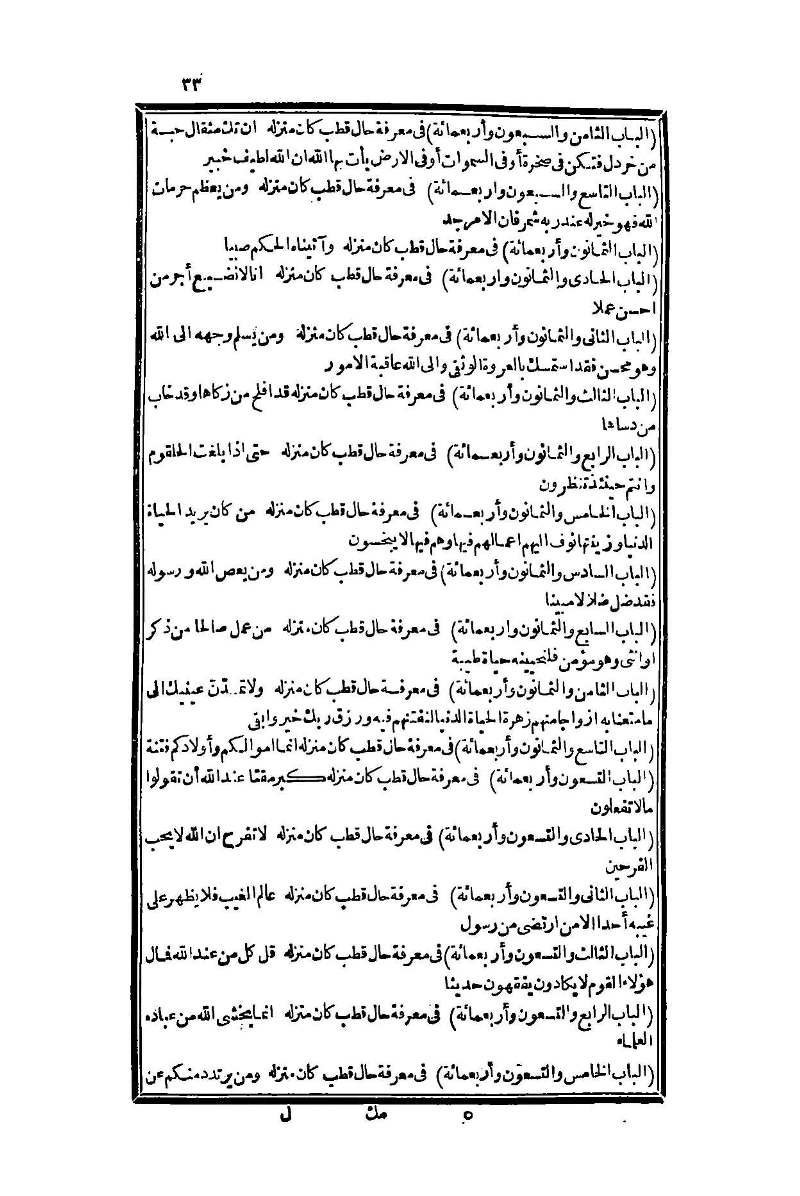 ٣٣
(الباب الثامن والسبعون وأربعمائة) فى معرفة حال قطب كان منزله ان تك مثقال حبة
من خردل فتكن فى صخرة أوفى السموات أوفى الارض يأت بها الله ان الله لطيف خبير
(الباب التاسع والسبعون واربعمائة) فى معرفة حال قطب كان منزله ومن يعظم حرمات
الله فهو خير له عند ربه شمرفان الامر جد
(الباب الثمانون وأربعمائة) فى معرفة حال قطب كان منزله وآتيناه الحكم صبيا
(الباب الحادى والثمانون واربعمائة) فى معرفة حال قطب كان منزله انا لانضيع أجر من
احسن عملا
(الباب الثانى والثمانون وأربعمائة) فى معرفة حال قطب كان منزله ومن يسلم وجهه الى الله
وهو محسن فقد استمسك بالعروة الوثقى والى الله عاقبة الامور
(الباب الثالث والثمانون وأربعمائة) فى معرفة حال قطب كان منزله قد افلح من زكاها وقد خاب
من دساها
(الباب الرابع والثمانون وأربعمائة) فى معرفة حال قطب كان منزله حتى اذا بلغت الحلقوم
وانتم حينئذ تنظرون
(الباب الخامس والثمانون وأربعمائة) فى معرفة حال قطب كان منزله من كان يريد الحياة
الدنيا وزينتها نوف اليهم اعمالهم فيها وهم فيها لا يبخسون
(الباب السادس والثمانون وأربعمائة) فى معرفة حال قطب كان منزله ومن يعص الله ورسوله
فقد ضل ضلالا مبينا
(الباب السابع والثمانون واربعمائة) فى معرفة حال قطب كان منزله من عمل صالحا من ذكر
اوانثى وهو مؤمن فلنحيينه حياة طيبة
(الباب الثامن والثمانون وأربعمائة) فى معرفة حال قطب كان منزله ولاتمدن عينيك الى
ما متعنا به ازواجا منهم زهرة الحياة الدنيا لنفتنهم فيه ورزق ربك خير وابقى
(الباب التاسع والثمانون وأربعمائة) فى معرفة حال قطب كان منزله انما اموالكم وأولادكم فتنة
(الباب التسعون وأربعمائة) فى معرفة حال قطب كان منزله كبر مقتا عند الله أن تقولوا
مالا تفعلون
(الباب الحادى والتسعون وأربعمائة) فى معرفة حال قطب كان منزله لا تفرح ان الله لا يحب
الفرحين
(الباب الثانى والتسعون وأربعمائة) فى معرفة حال قطب كان منزله عالم الغيب فلا يظهر على
غيبه أحدا الا من ارتضى من رسول
(الباب الثالث والتسعون وأربعمائة) فى معرفة حال قطب كان منزله قل كل من عند الله فمال
هؤلاء القوم لا يكادون يفقهون حديثا
(الباب الرابع والتسعون وأربعمائة) فى معرفة حال قطب كان منزله انما يخشى الله من عباده
العلماء
(الباب الخامس والتسعون وأربعمائة) فى معرفة حال قطب كان منزله ومن يرتدد منكم عن
٥ مك ل